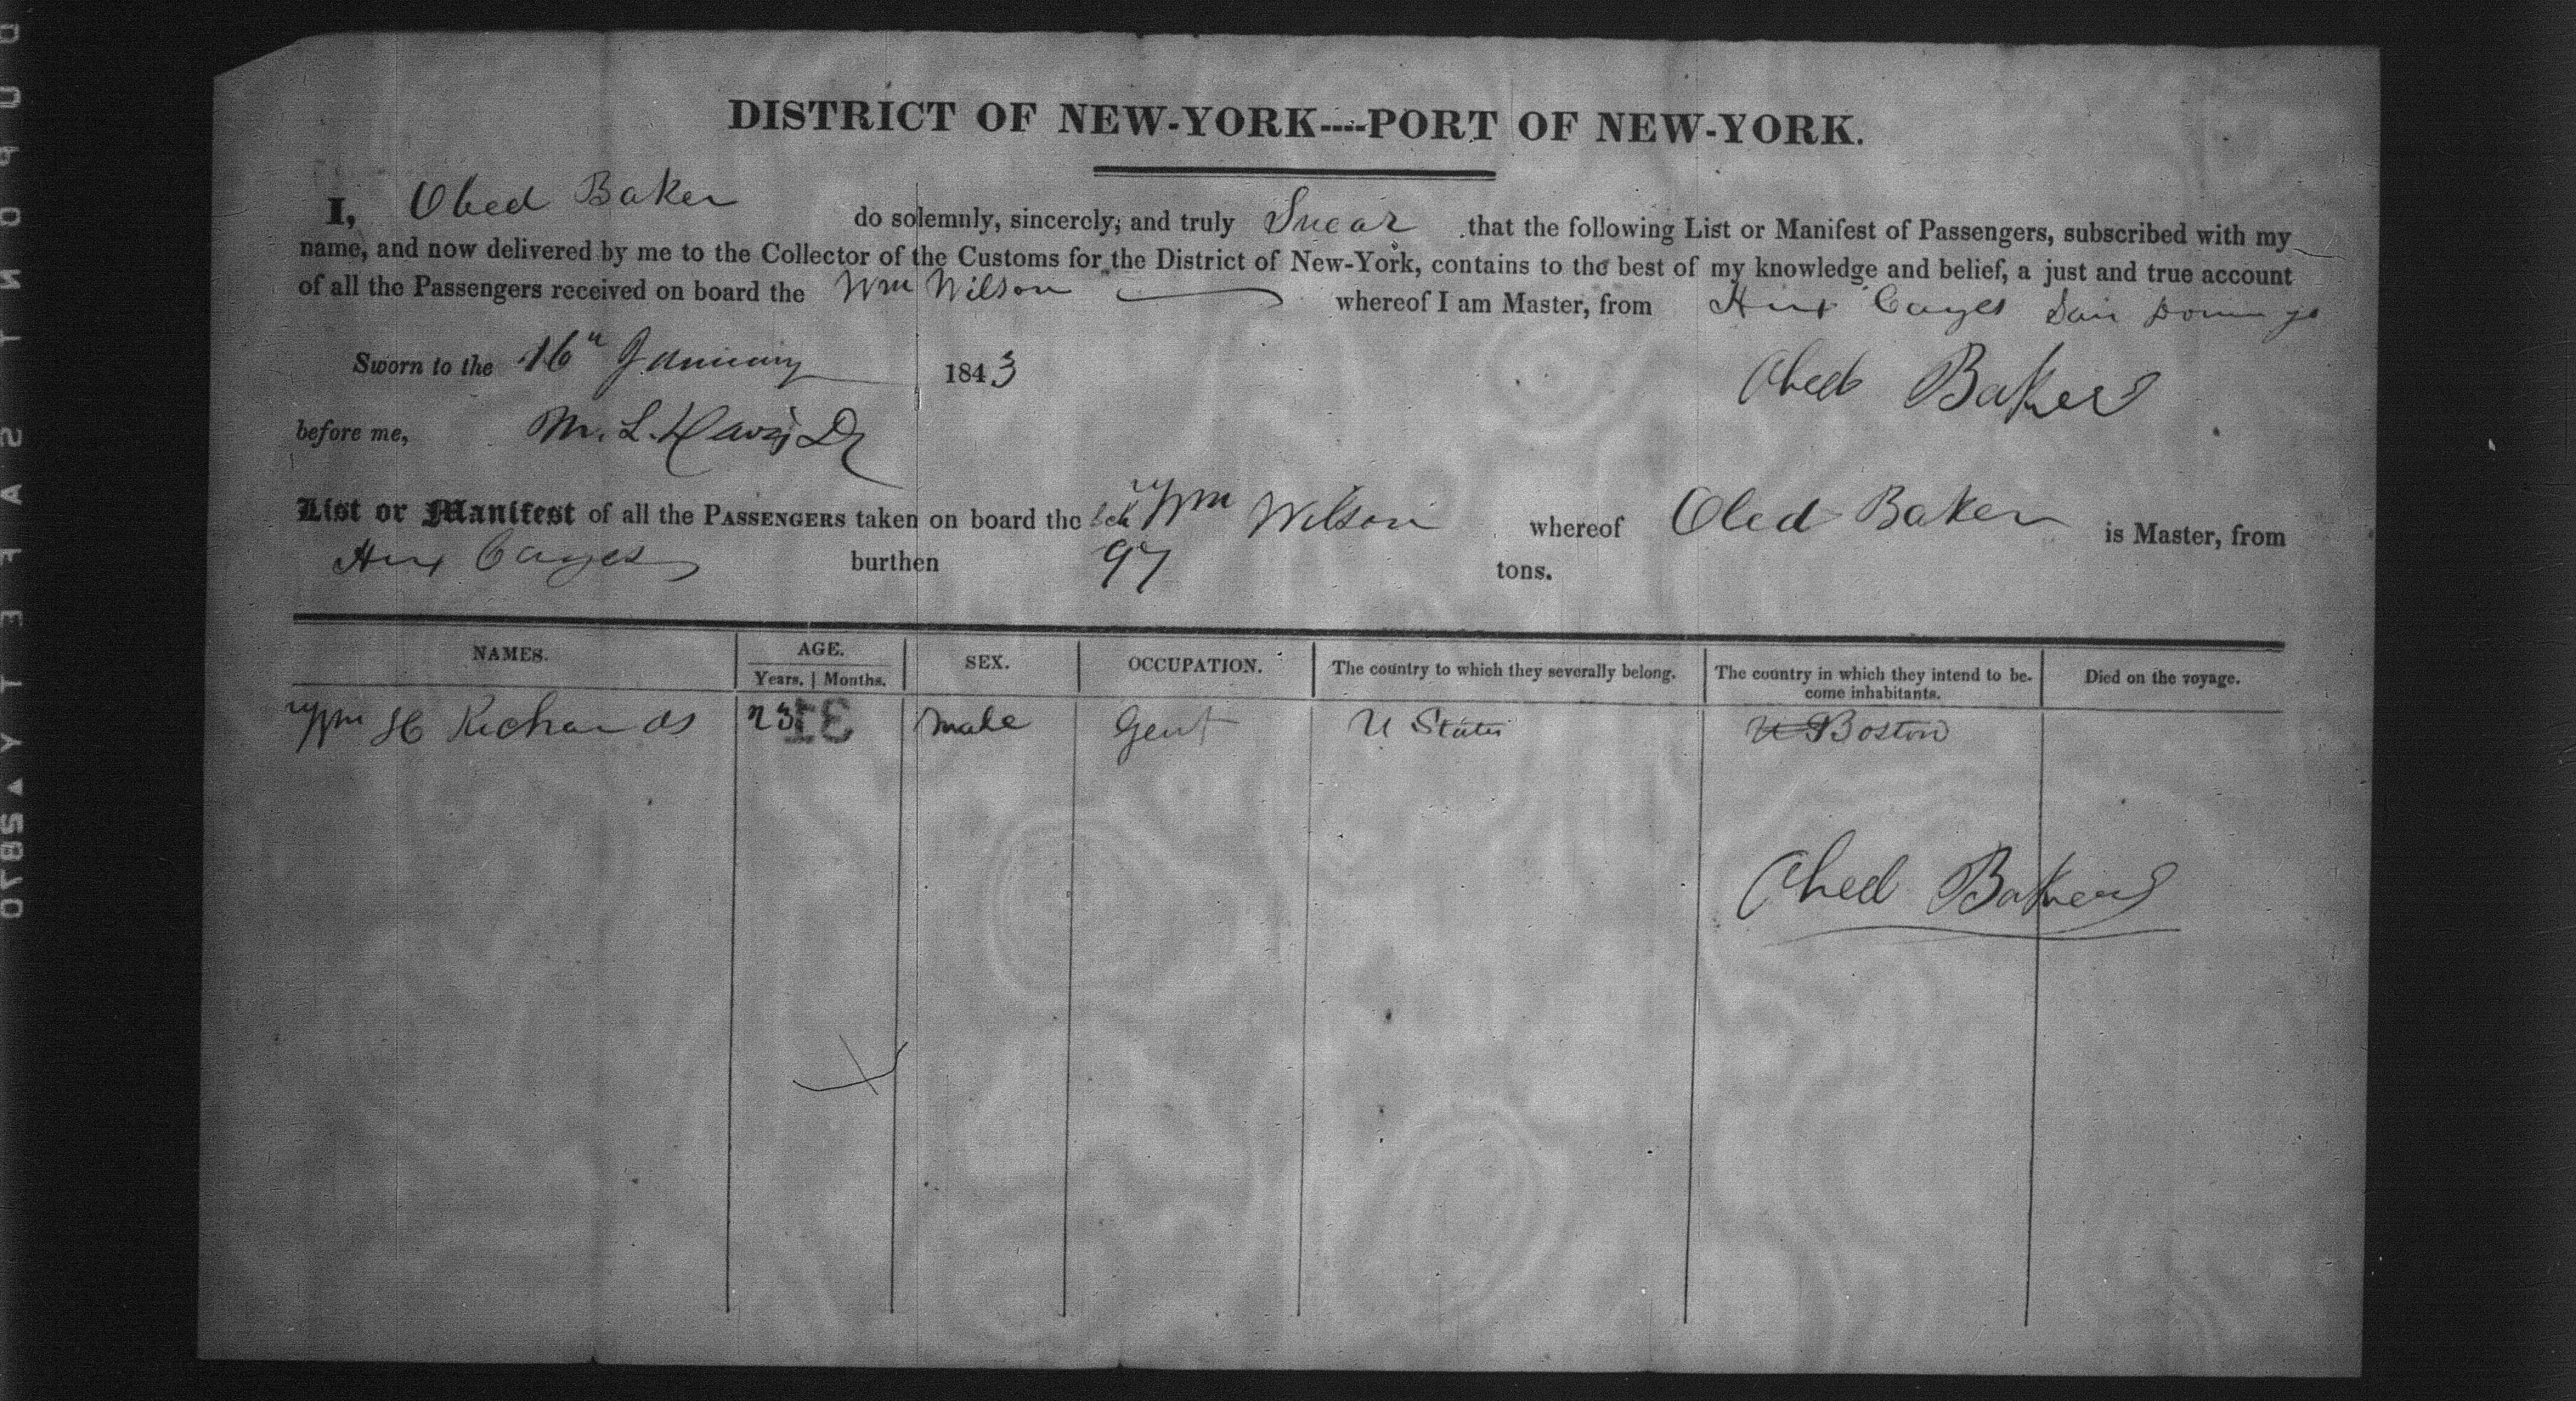 DISTRICT OF NEW-YORK----PORT OF NEW-YORK.
I, Obed Baker do solemnly, sincerely, and truly Swear that the following List or Manifest of Passengers, subscribed with my
name, and now delivered by me to the Collector of the Customs for the District of New-York, contains to the best of my knowledge and belief, a just and true account
of all the Passengers received on board the Wm Wilson whereof I am Master, from Aux Cayes Domingo
Sworn to the 16th January 1843
Obed Baker
before me, M. L. Davis
List or Manifest of all the PASSENGERS taken on board the Sch Wm Wilson whereof Obed Baker is Master, from
Aux Cayes burthen 97 tons.
NAMES. AGE. SEX. OCCUPATION. The country to which they severally belong. The country in which they intend to be- Died on the voyage.
Years. Months. come inhabitants.
Wm H Richards 23 male Gent U States Boston
Obed Baker
SAFETY ▲ 2870